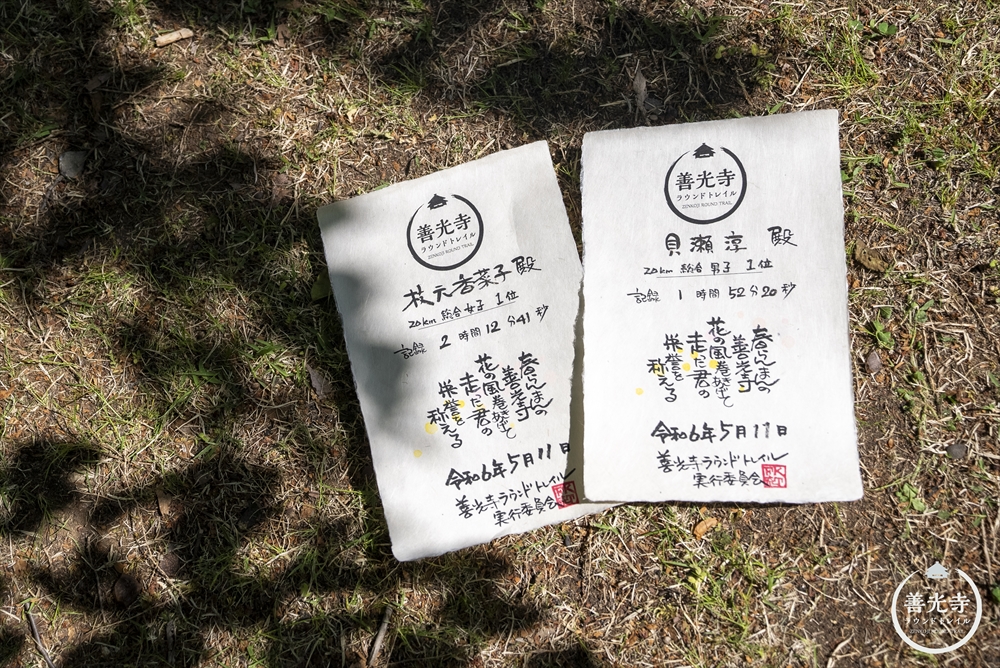 善光寺
ラウンドトレイル
ZENKOJI ROUND TRAIL
枝元香菜子 殿
20km 総合 女子 1位
記録 2時間12分41秒
春らんまんの
善光寺
花の風巻き起こして
走った君の
栄誉を
称える
令和6年5月11日
善光寺ラウンドトレイル
実行委員会
善光寺
ラウンドトレイル
ZENKOJI ROUND TRAIL
貝瀬淳 殿
20km 総合 男子 1位
記録 1時間52分20秒
春らんまんの
善光寺
花の風巻き起こして
走った君の
栄誉を
称える
令和6年5月11日
善光寺ラウンドトレイル
実行委員会
善光寺
ラウンドトレイル